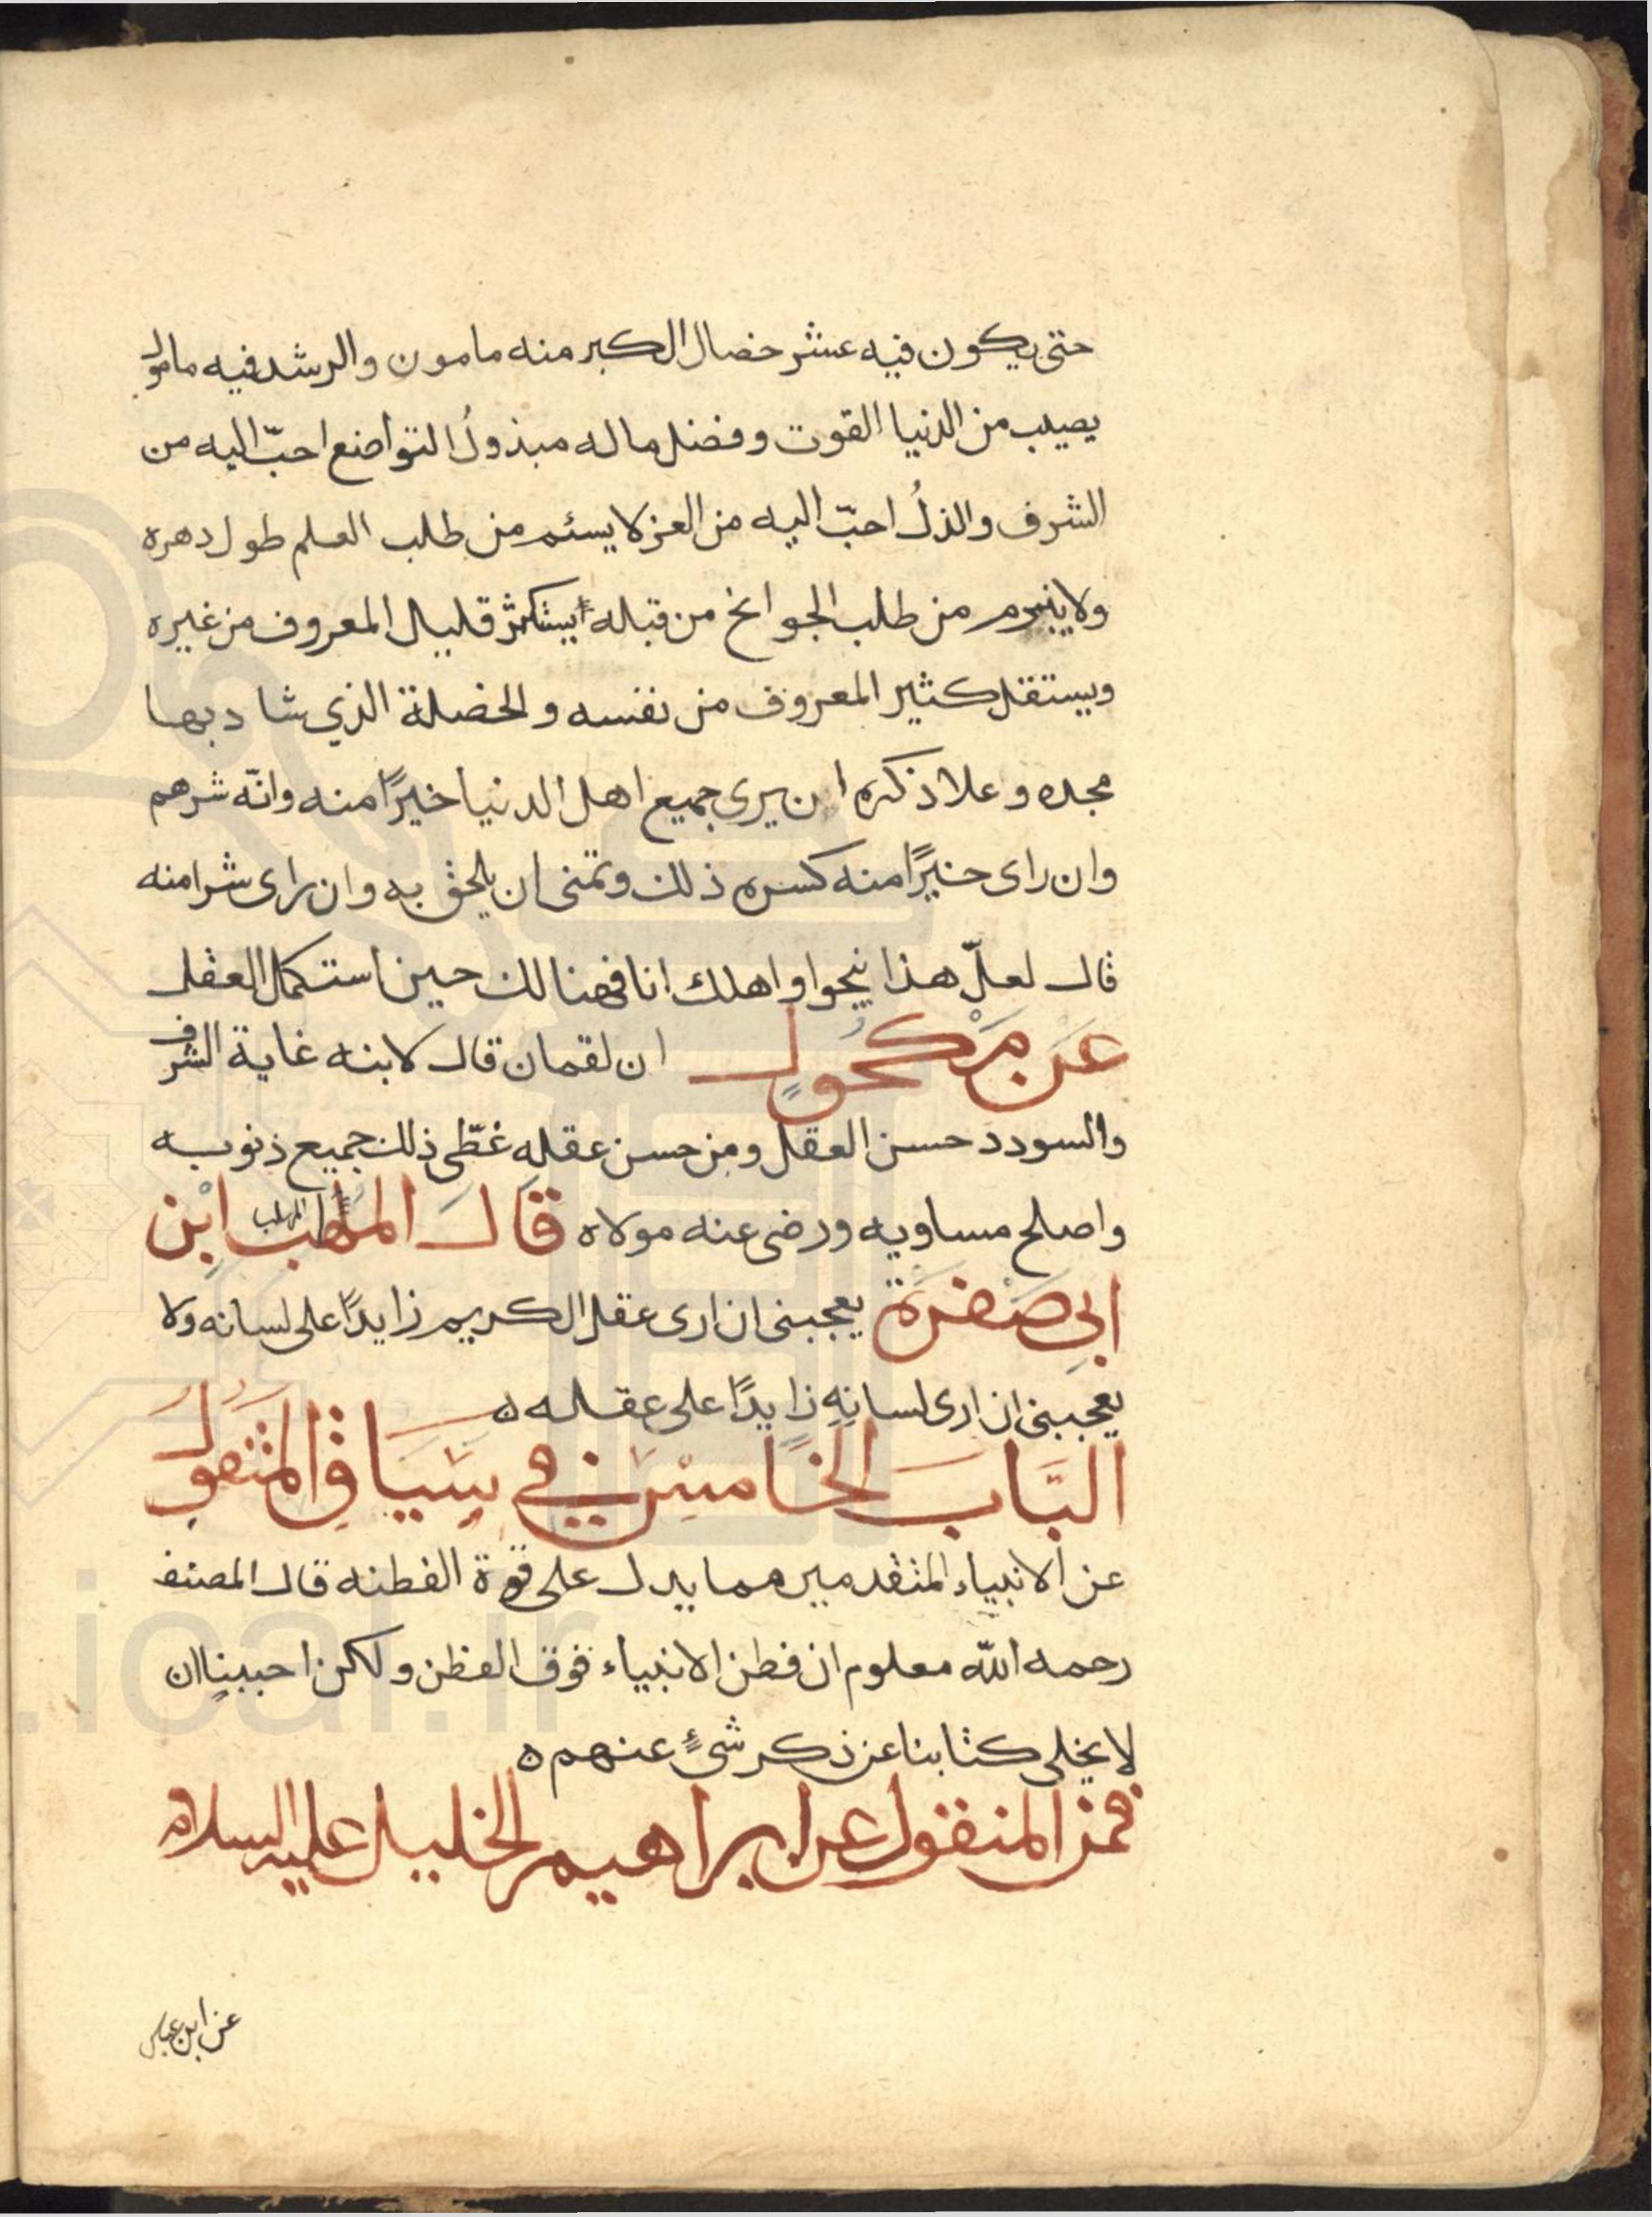 حتى يكون فيه عشر خصال الكبر منه مامون والرشد فيه مامول
يصيب من الدنيا القوت وفضل ماله مبذولُ التواضع احبّ اليه من
الشرف والذلُ احبّ اليه من العز لا يسئم من طلب العلم طول دهره
ولا يتبرم من طلب الحوائج من قبله يستكثر قليل المعروف من غيره
ويستقل كثير المعروف من نفسه والخصلة الذي شاد بها
مجده وعلا ذكره ان يرى جميع اهل الدنيا خيرًا منه وانّه شرهم
وان راى خيرًا منه كسره ذلك وتمنى ان يلحق به وان راى شرا منه
قال لعلّ هذا ينجوا واهلك انا فهنالك حين استكمل العقل
عَن مَكْحُولٍ ان لقمان قال لابنه غاية الشرف
والسودد حسن العقل ومن حسن عقله غطّى ذلك جميع ذنوبه
واصلح مساويه ورضى عنه مولاه قَالَ المهلب ابْن
ابِي صَفْرَة يعجبنى ان ارى عقل الكريم زايدًا على لسانه ولا
يعجبنى ان ارى لسانهِ زايدًا على عقله ه
البَّابَ الخَامِسَ في سِيَاقِ المَنْقولَ
عن الانبياء المتقدمين مما يدل على قوة الفطنه قال المصنف
رحمه اللّه معلوم ان فطن الانبياء فوق الفطن ولكن احببنا ان
لا يخلى كتابنا عن ذكر شئٍ عنهم ه
فمن المنقول عن ابراهيم الخليل عليه السلام
عن ابن عباس